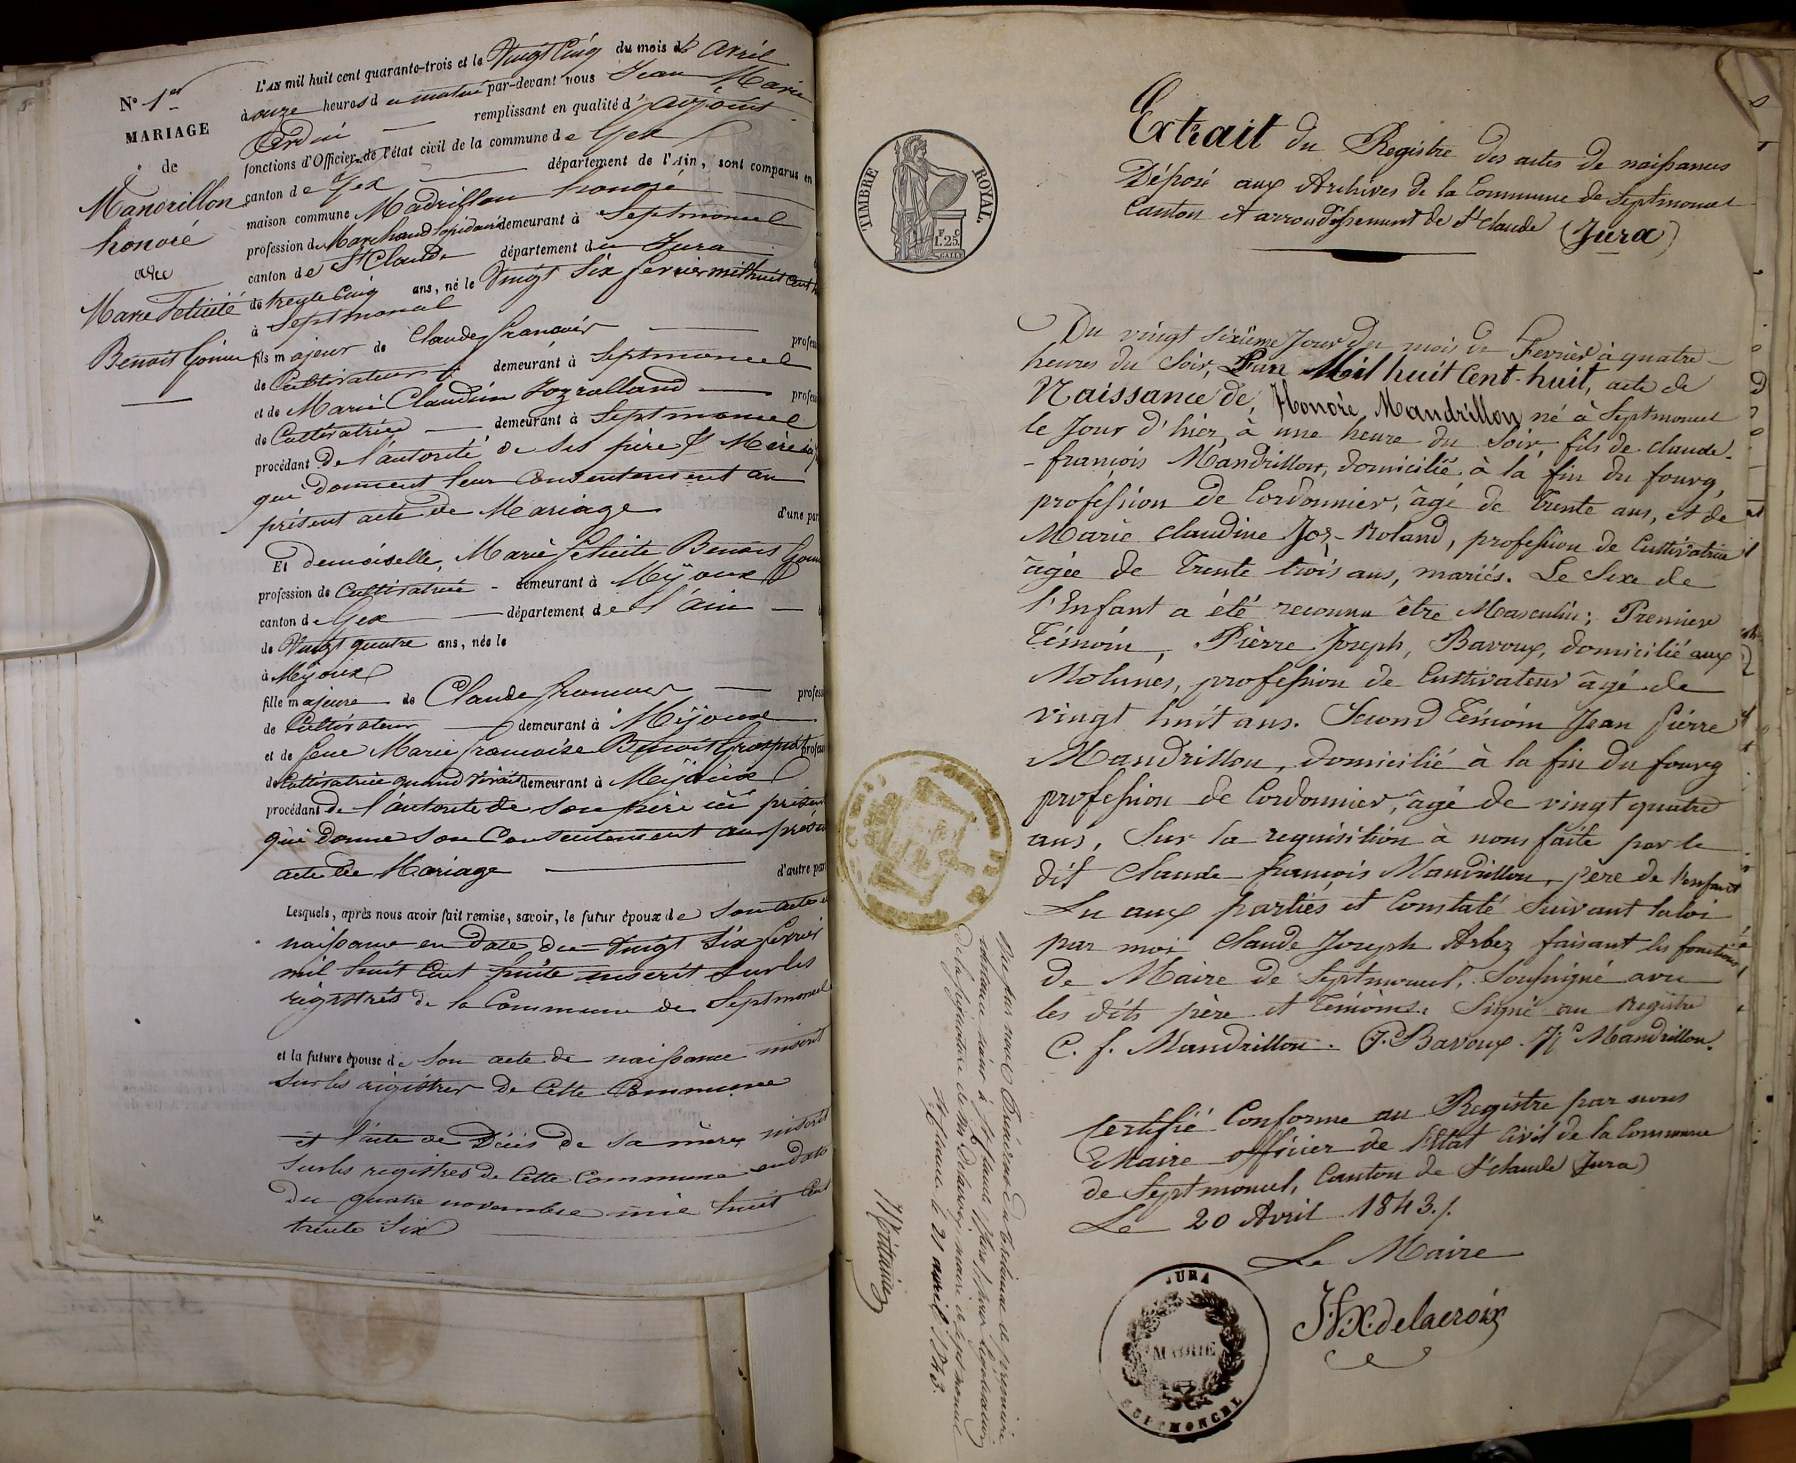 N° 1er
MARIAGE
de
Mandrillon
honoré
avec
Marie Félicité
Benoit Gonin
L'AN mil huit cent quarante-trois et le Vingt Cinq du mois de avril
à onze heures du matin par-devant nous Jean Marie
remplissant en qualité d'adjoint
fonctions d'Officier de l'état civil de la commune de Gex
canton de Gex département de l'Ain, sont comparus en
maison commune Madrillon honoré
profession de Marchand lapidaire demeurant à Septmoncel
canton de St Claude département du Jura
de trente Cinq ans, né le Vingt Six fevrier mil huit Cent
à Septmoncel
fils majeur de Claude francois profes
de Cultivateur demeurant à Septmoncel
et de Marie Claudine Jozrolland profes
de Cultivatrice demeurant à Septmoncel
procédant De l'autorité de Ses père & Mère ici
qui donnent leur Consentement au
présent acte de Mariage d'une part
Et demoiselle, Marie felicite Benois Gonin
profession de Cultivatrice demeurant à Mijoux
canton de Gex département de l'ain
de Vingt quatre ans, née le
à Mijoux
fille majeure de Claude francois profess
de Cultivateur demeurant à Mijoux
et de feue Marie francoise Benoit Grospat profes
de Cultivatrice quand vivait demeurant à Mijoux
procédant de l'autorité de Son père ici présent
qui donne Son Consentement au présent
acte de Mariage d'autre part
Lesquels, après nous avoir fait remise, savoir, le futur époux de Son acte de
naissance en date du Vingt Six fevrier
mil huit Cent huite inscrit Sur les
régistres de la Commune de Septmoncel
et la future épouse de Son acte de naissance inscrit
Sur les régistres de Cette Commune
et l'acte de Décès de Sa mère inscrit
Sur les registres de Cette Commune en date
du quatre novembre mil huit Cent
trente Six
TIMBRE ROYAL
F. C
1.25
Extrait du Registre des actes de naissances
Déposé aux Archives de la Commune de Septmoncel
Canton et arrondissement de St Claude (Jura)
Du vingt sixième Jour du mois de Fevrier à quatre
heures du Soir, L'an Mil huit Cent-huit, acte de
Naissance de, Honoré Mandrillon né à Septmoncel
le Jour d'hier, à une heure du Soir, fils de Claude-
-francois Mandrillon, domicilié à la fin du fourg,
profession de Cordonnier, âgé de Trente ans, et de
Marie Claudine Joz-Roland, profession de Cultivatrice
âgée de Trente trois ans, mariés. Le Sexe de
l'Enfant a été reconnu être Masculin; Premier
Témoin, Pierre Joseph, Bavoux, domicilié aux
Molunes, profession de Cultivateur âgé de
vingt huit ans. Second Témoin Jean pierre
Mandrillon, domicilié à la fin du fourg
profession de Cordonnier, âgé de vingt quatre
ans, Sur la requisition à nous faite par le
dit Claude francois Mandrillon, père de l'enfant
Lu aux parties et Constaté Suivant la loi
par moi Claude Joseph Arbez faisant les fonctions
de Maire de Septmoncel, Soussigné avec
les dits père et Témoins. Signé au Registre
C. f. Mandrillon. P. J. Bavoux. J. P. Mandrillon.
Certifié Conforme au Registre par nous
Maire officier de l'Etat Civil de la Commune
de Septmoncel, Canton de St Claude (Jura)
Le 20 Avril 1843./.
Le Maire
J.f.X. delacroix
JURA
MAIRIE
SEPTMONCEL
Vu par nous Président du Tribunal de première
instance séant à St Claude (Jura) pour légalisation
de la signature de Mr Delacroix, maire de Septmoncel
St Claude le 21 avril 1843.